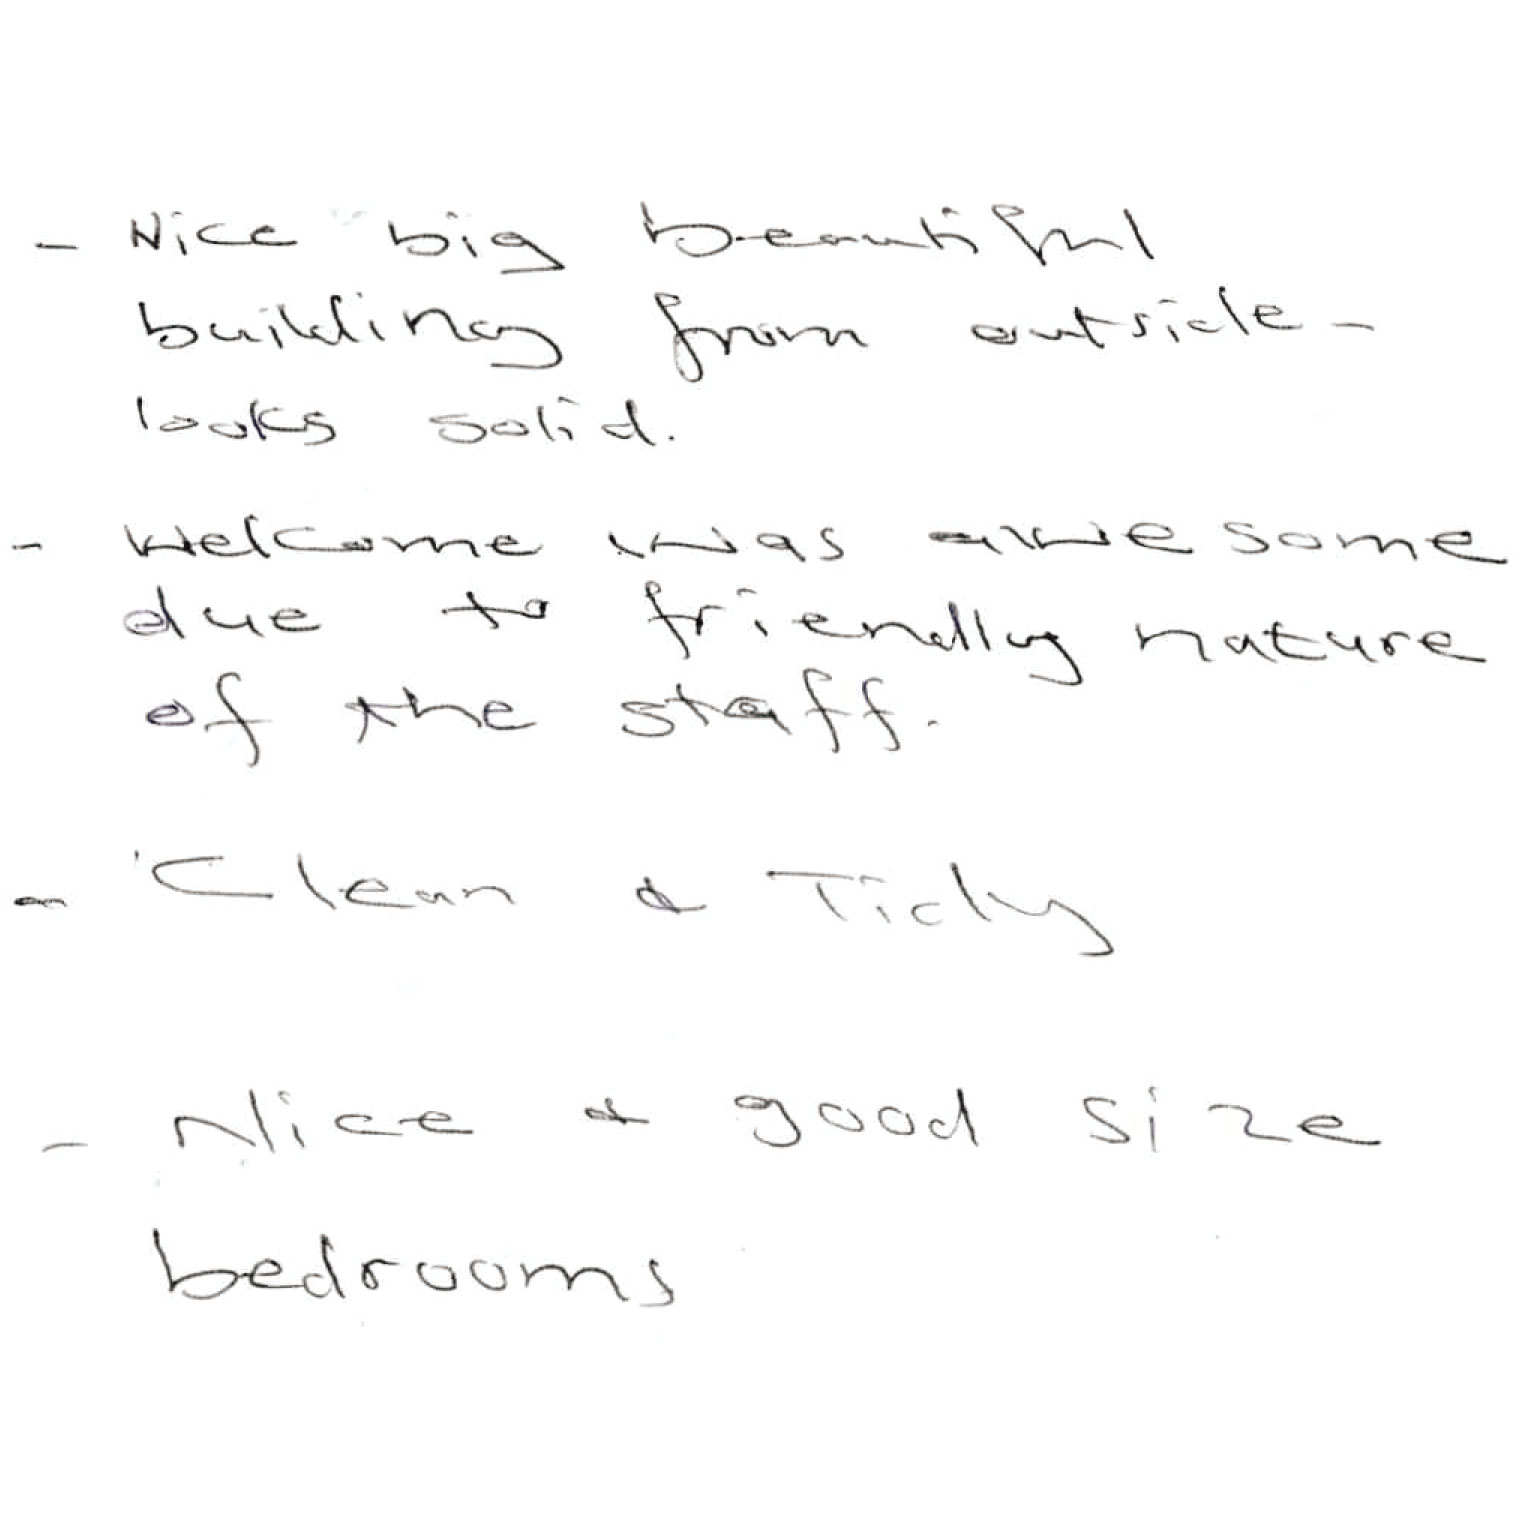 - Nice big beautiful
building from outside -
looks solid.
- Welcome was awesome
due to friendly nature
of the staff.
- Clean & Tidy
- Nice & good size
bedrooms